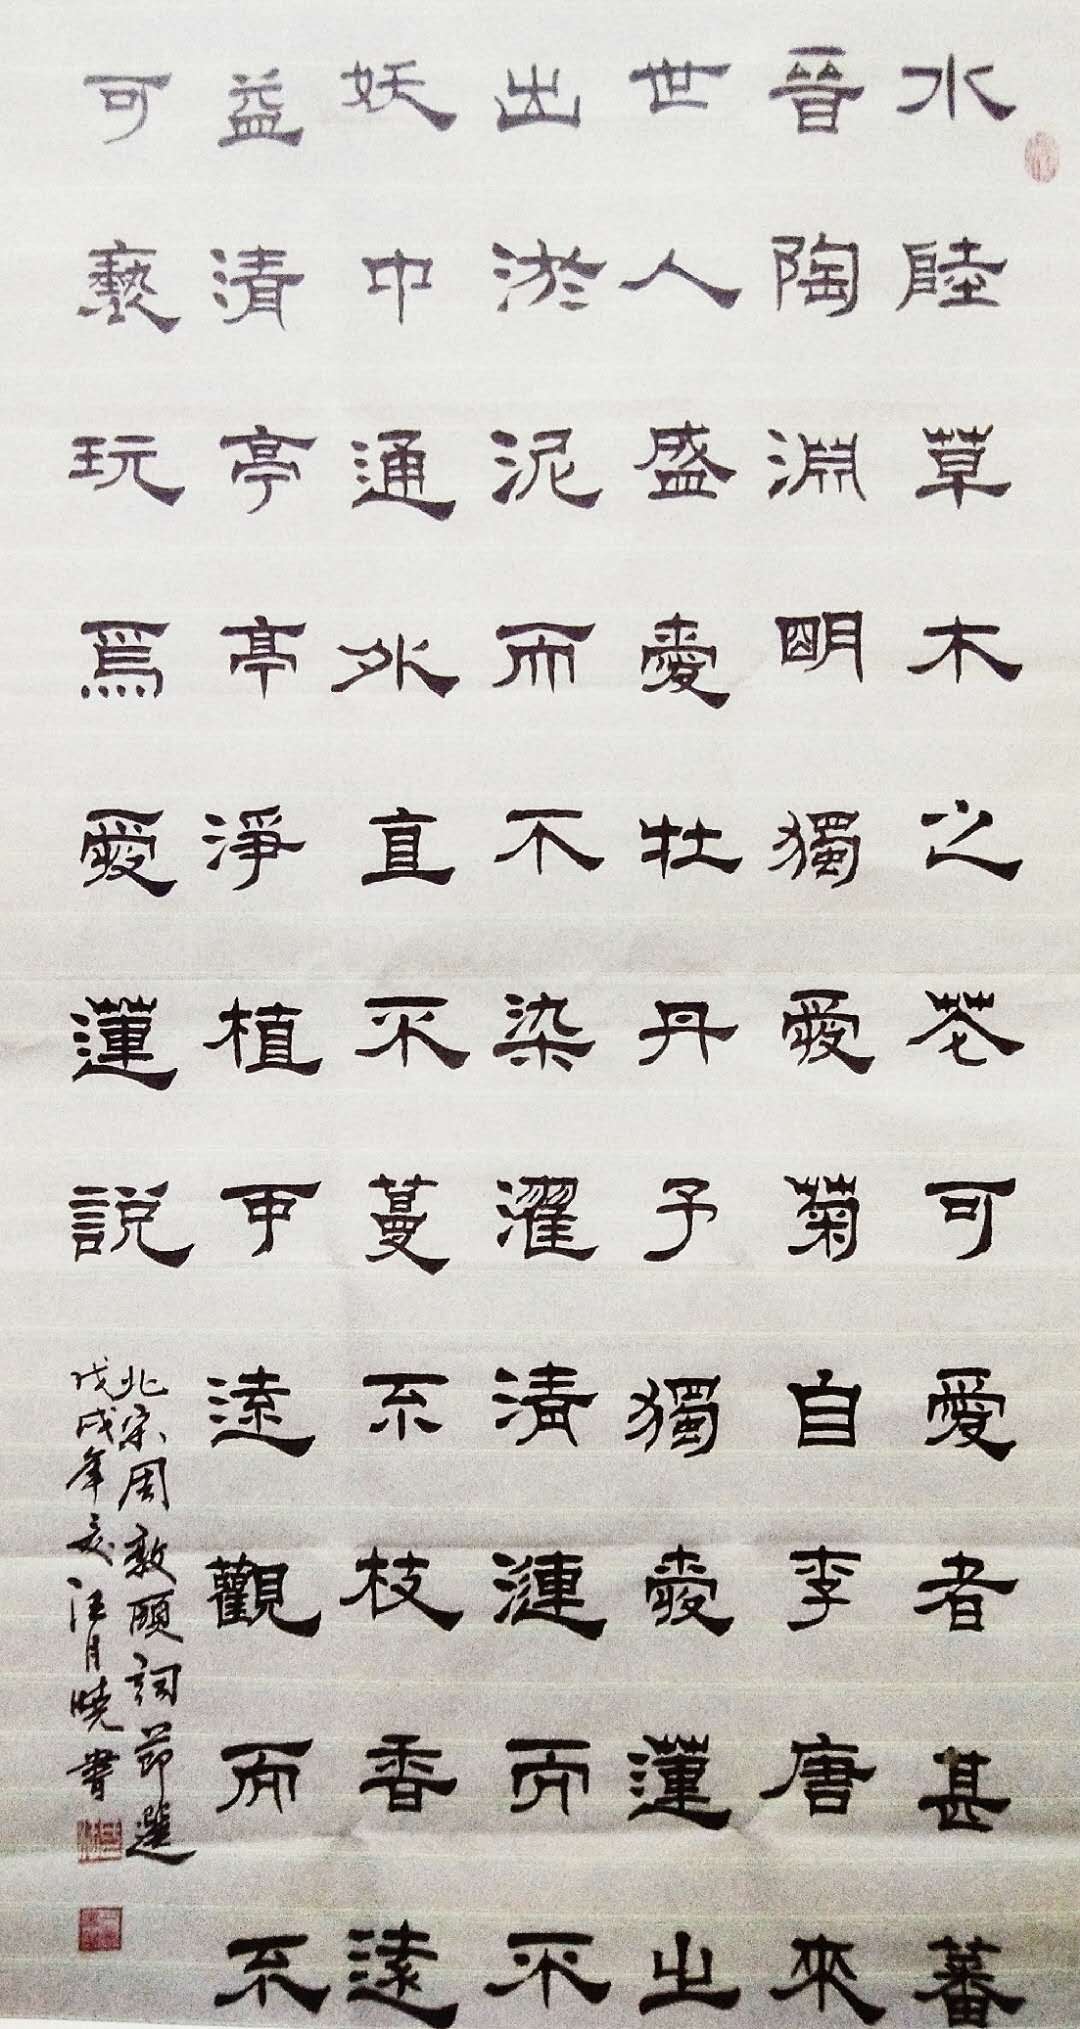 水陸草木之花可愛者甚蕃
晉陶淵明獨愛菊自李唐來
世人盛愛牡丹予獨愛蓮之
出淤泥而不染濯清漣而不
妖中通外直不蔓不枝香遠
益清亭亭淨植可遠觀而不
可褻玩焉愛蓮說
北宋周敦頤詞節選
戊戌年夏汪月曉書